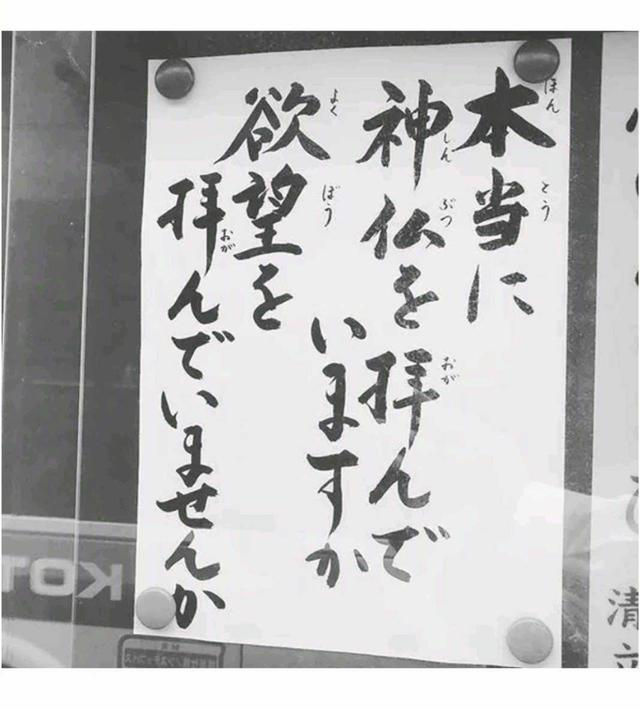 本当に
神仏を拝んで
いますか
欲望を
拝んでいませんか
ほん
とう
しん
ぶつ
おが
よく
ぼう
おが
KOT
清